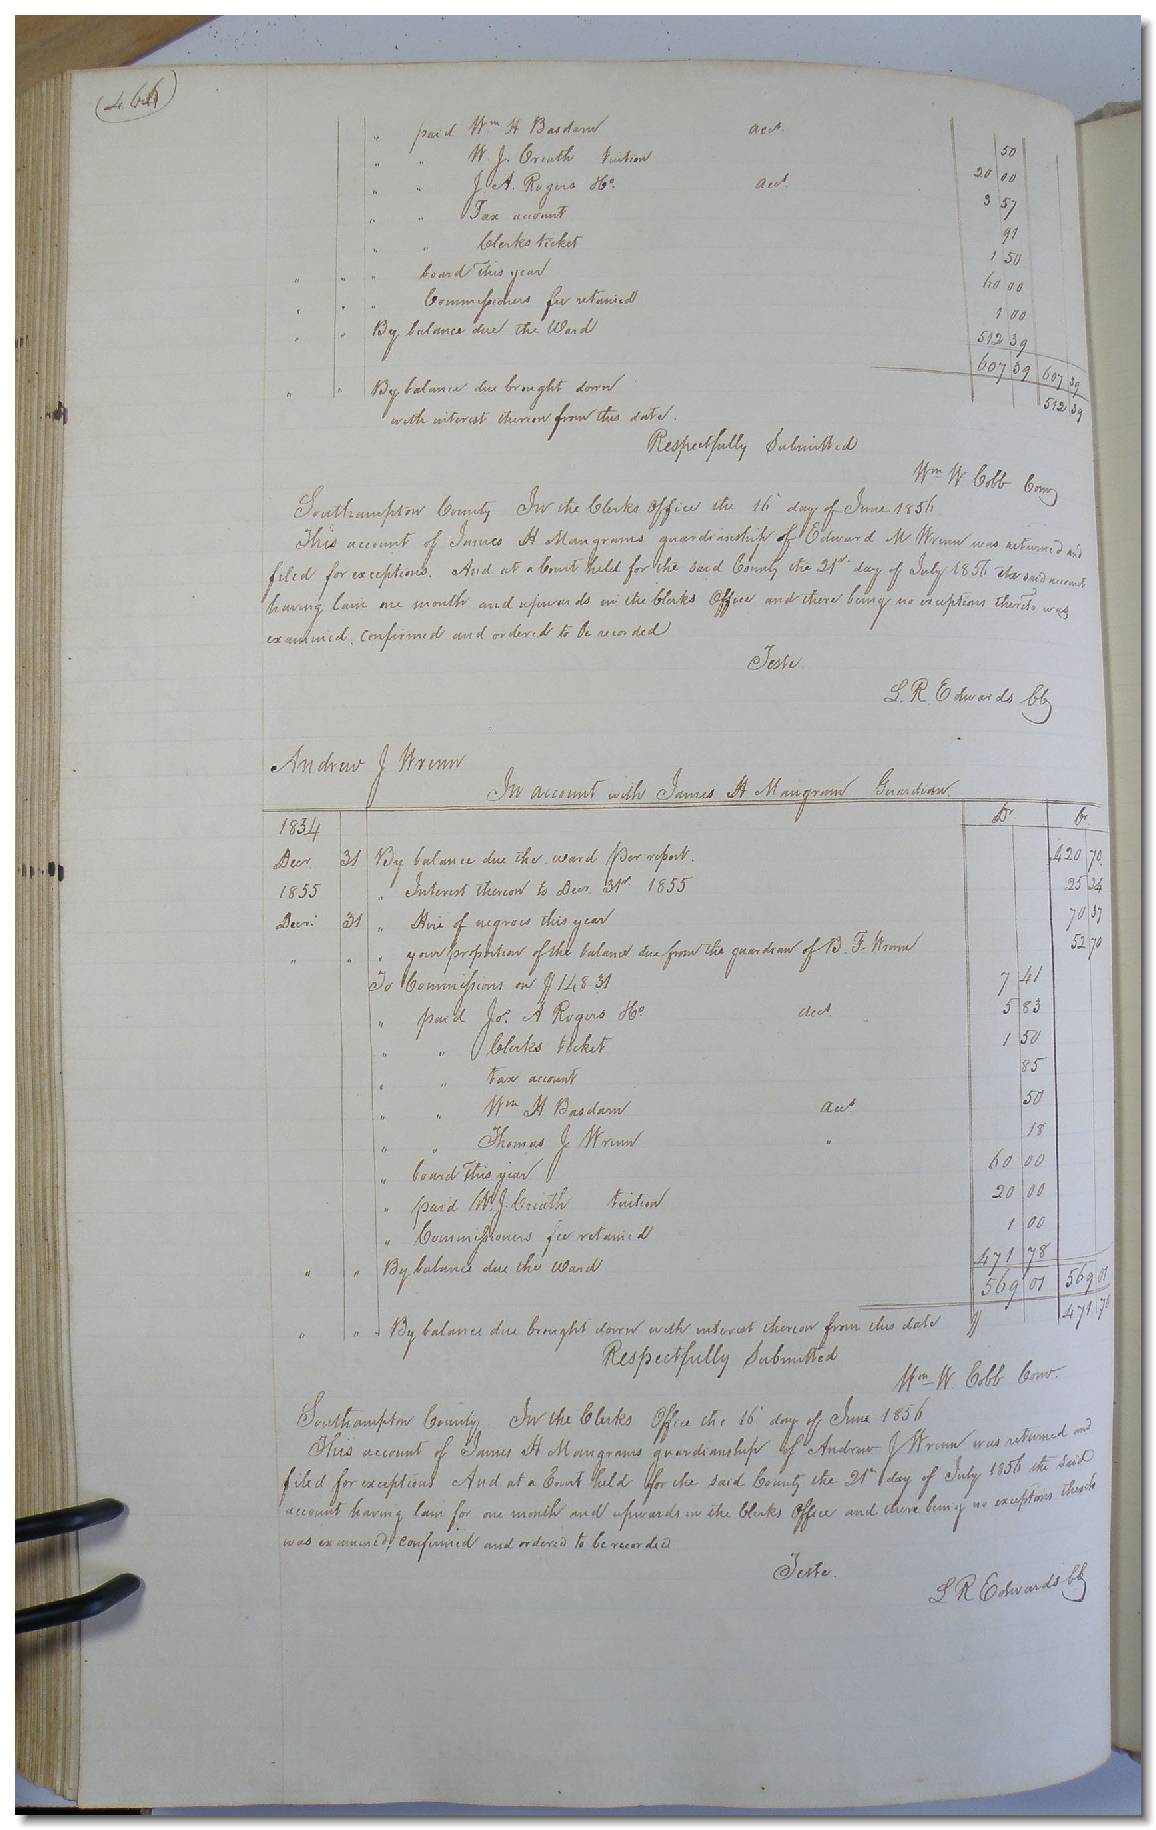 (466)
" paid Wm H Basdarn acct. 50
" " W. J. Creath tuition 20 00
" " J. A. Rogers & Co. acct. 3 57
" " Tax account 91
" " Clerks ticket 1 50
" " " board this year 60 00
" " " Commissioners fee retained 1 00
" " By balance due the Ward 512 39
607 39 607 39
" " By balance due brought down 512 39
with interest thereon from this date.
Respectfully Submitted
Wm W Cobb Comr
Southampton County In the Clerks Office the 16 day of June 1856
This account of James H Mangrams guardianship of Edward M Wrenn was returned and
filed for exceptions. And at a Court held for the said County the 21st day of July 1856 the said account
having lain one month and upwards in the Clerks Office and there being no exceptions thereto was
examined, confirmed and ordered to be recorded
Teste
L. R. Edwards CC
Andrew J Wrenn
In account with James H Mangram Guardian
1854 Dr Cr.
Decr. 31 By balance due the ward per report. 420 70
1855 " Interest thereon to Decr. 31st 1855 25 24
Decr. 31 " Hire of negroes this year 70 37
" " " your proportion of the balance due from the guardian of B. F. Wrenn 52 70
To Commissions on $148.31 7 41
" paid Jos. A Rogers & Co. acct. 5 83
" " Clerks ticket 1 50
" " tax account 85
" " Wm H Basdarn acct 50
" " Thomas J. Wrenn " 18
" board this year 60 00
" paid W. J. Creath tuition 20 00
" Commissioners fee retained 1 00
" " By balance due the Ward 471 78
569 01 569 01
" " " By balance due brought down with interest thereon from this date $ 471 78
Respectfully Submitted
Wm W. Cobb Comr.
Southampton County In the Clerks Office the 16 day of June 1856
This account of James H Mangrams guardianship of Andrew J Wrenn was returned and
filed for exceptions And at a Court held for the said County the 21st day of July 1856 the said
account having lain for one month and upwards in the Clerks Office and there being no exceptions thereto
was examined, confirmed and ordered to be recorded
Teste.
L R Edwards CC